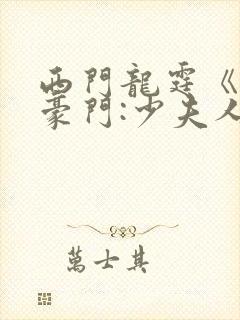 西門龍霆《
豪門:少夫人
萬士其